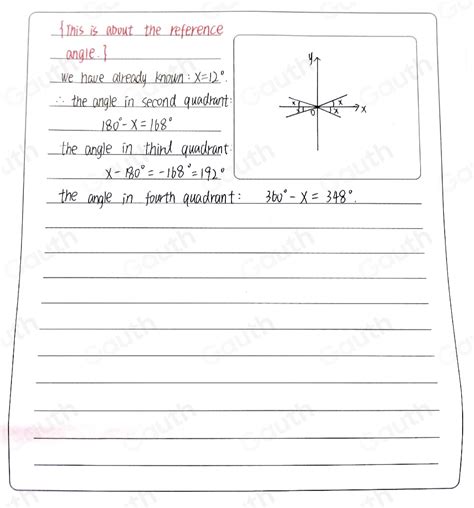 {This is about the reference
angle.}
we have already known: x=12°.
∴ the angle in second quadrant:
180°-x=168°
the angle in third quadrant:
x-180°=-168°=192°
the angle in fourth quadrant: 360°-x=348°.
y
x
x
x
x
x
O
Gauth